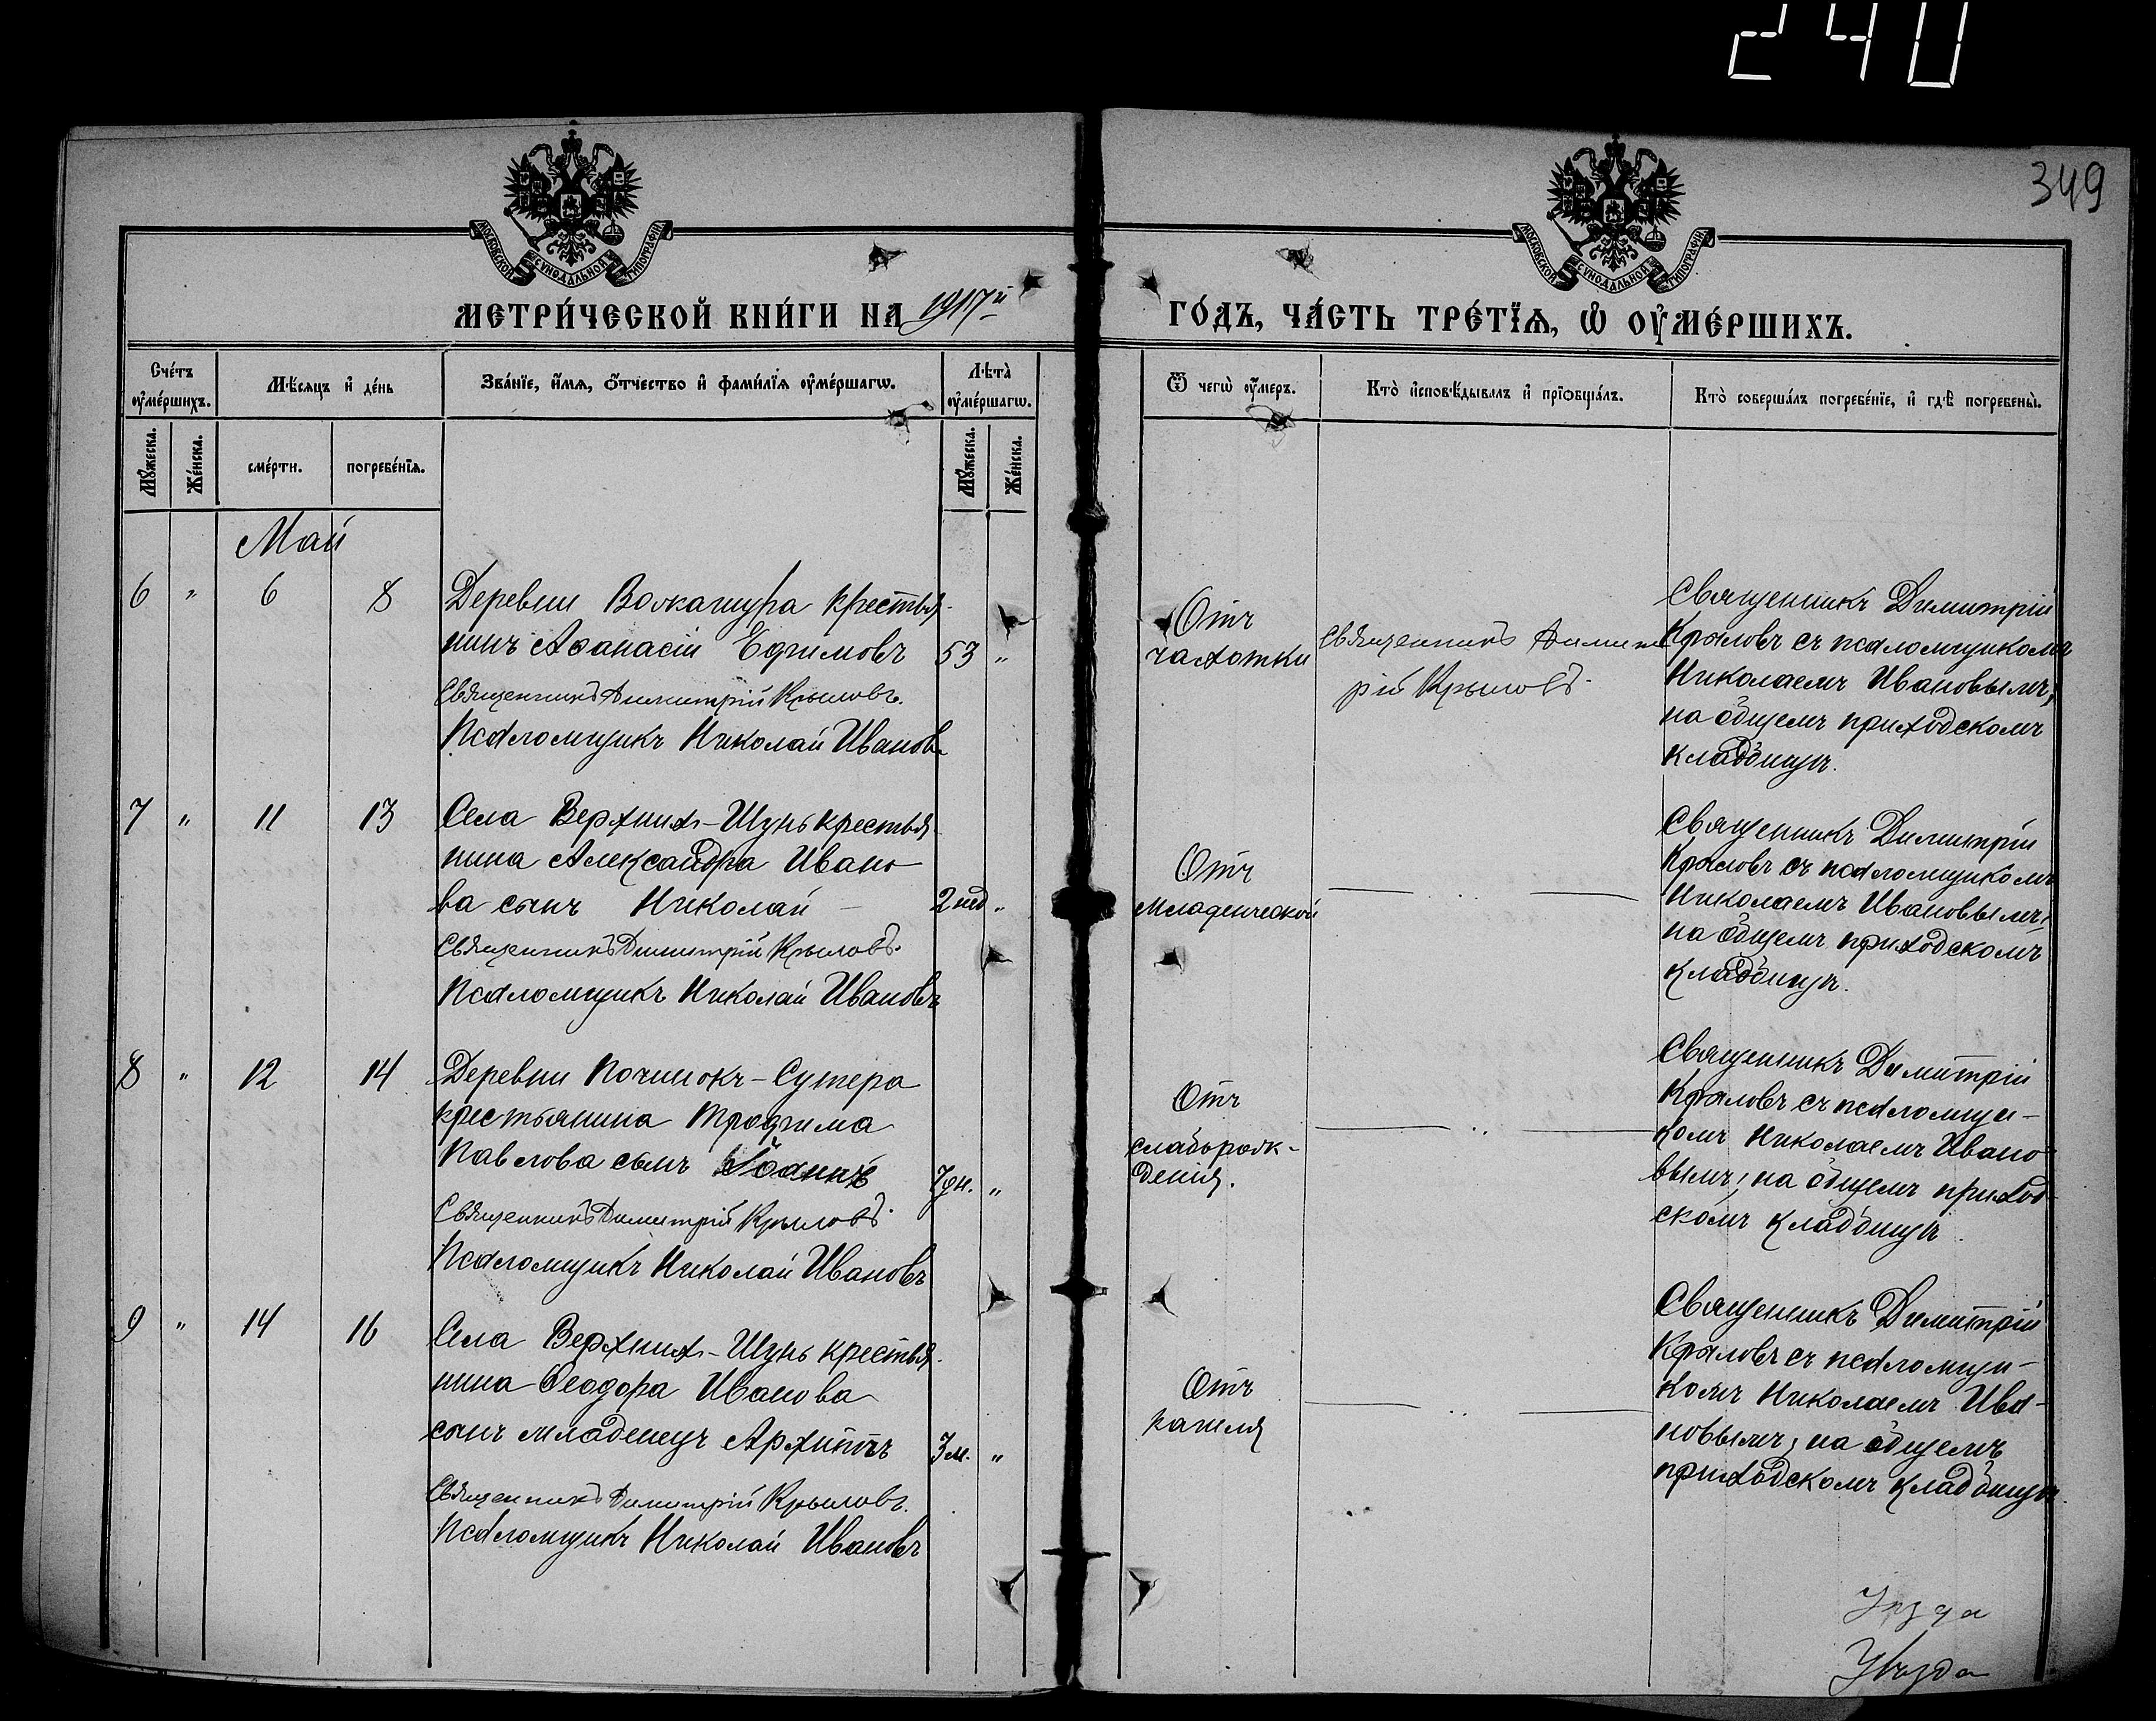 240
349
МОСКОВСКОЙ СѴНОДАЛЬНОЙ ТИПОГРАФІИ
МОСКОВСКОЙ СѴНОДАЛЬНОЙ ТИПОГРАФІИ
МЕТРИ́ЧЕСКОЙ КНИ́ГИ НА 1917й ГО́ДЪ, ЧА́СТЬ ТРЕ́ТЇѦ, Ѡ҆ ОУ҆МЕ́РШИХЪ.
Сче́тъ оу҆ме́ршихъ.
Мѣ́сяцъ и҆ де́нь
Зва́нїе, и҆́мѧ, ѻ҆́тчество и҆ фами́лїѧ оу҆ме́ршагѡ.
Лѣ́та̀ оу҆ме́ршагѡ.
Ѿ чегѡ̀ оу҆́меръ.
Кто̀ и҆сповѣ́дывалъ и҆ прїѡбща́лъ.
Кто̀ соверша́лъ погребе́нїе, и҆ гдѣ̀ погребены̀.
Мꙋ́жеска.
Же́нска.
сме́рти.
погребе́нїѧ.
Мꙋ́жеска.
Же́нска.
Май
6 " 6 8
Деревни Волкашура крестья-
нинъ Аѳанасій Ефимовъ 53 "
Священникъ Димитрій Крыловъ.
Псаломщикъ Николай Ивановъ
Отъ
чахотки
Священникъ Димит
рій Крыловъ.
Священникъ Димитрій
Крыловъ съ псаломщикомъ
Николаемъ Ивановымъ,
на общемъ приходскомъ
кладбищѣ.
7 " 11 13
Села Верхнихъ-Шунь крестья-
нина Александра Ивано-
ва сынъ Николай 2 нед "
Священникъ Димитрій Крыловъ.
Псаломщикъ Николай Ивановъ
Отъ
младенческой
"
Священникъ Димитрій
Крыловъ съ псаломщикомъ
Николаемъ Ивановымъ,
на общемъ приходскомъ
кладбищѣ.
8 " 12 14
Деревни Починокъ-Сутера
крестьянина Трофима
Павлова сынъ Іоаннъ 7 дн. "
Священникъ Димитрій Крыловъ.
Псаломщикъ Николай Ивановъ
Отъ
слаборож-
денія.
"
Священникъ Димитрій
Крыловъ съ псаломщи-
комъ Николаемъ Ивано-
вымъ, на общемъ приход-
скомъ кладбищѣ.
9 " 14 16
Села Верхнихъ-Шунь крестья-
нина Ѳеодора Иванова
сынъ младенецъ Архиппъ 3 м. "
Священникъ Димитрій Крыловъ.
Псаломщикъ Николай Ивановъ
Отъ
кашля
"
Священникъ Димитрій
Крыловъ съ псаломщи-
комъ Николаемъ Ива-
новымъ, на общемъ
приходскомъ кладбищѣ.
Уѣзда